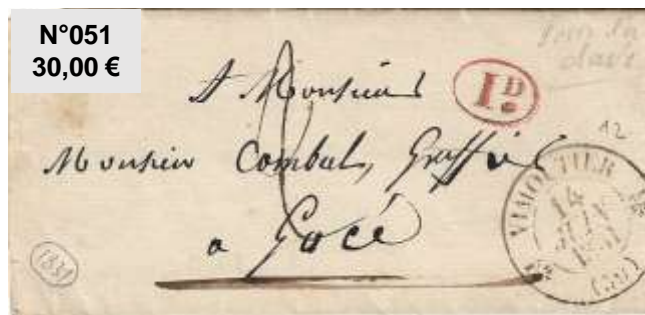 N°051
30,00 €
A Monsieur
1D
Monsieur Combal, Greffier
a Gacé
12
VIMOUTIER
14
JUIN
1831
(59)
1831